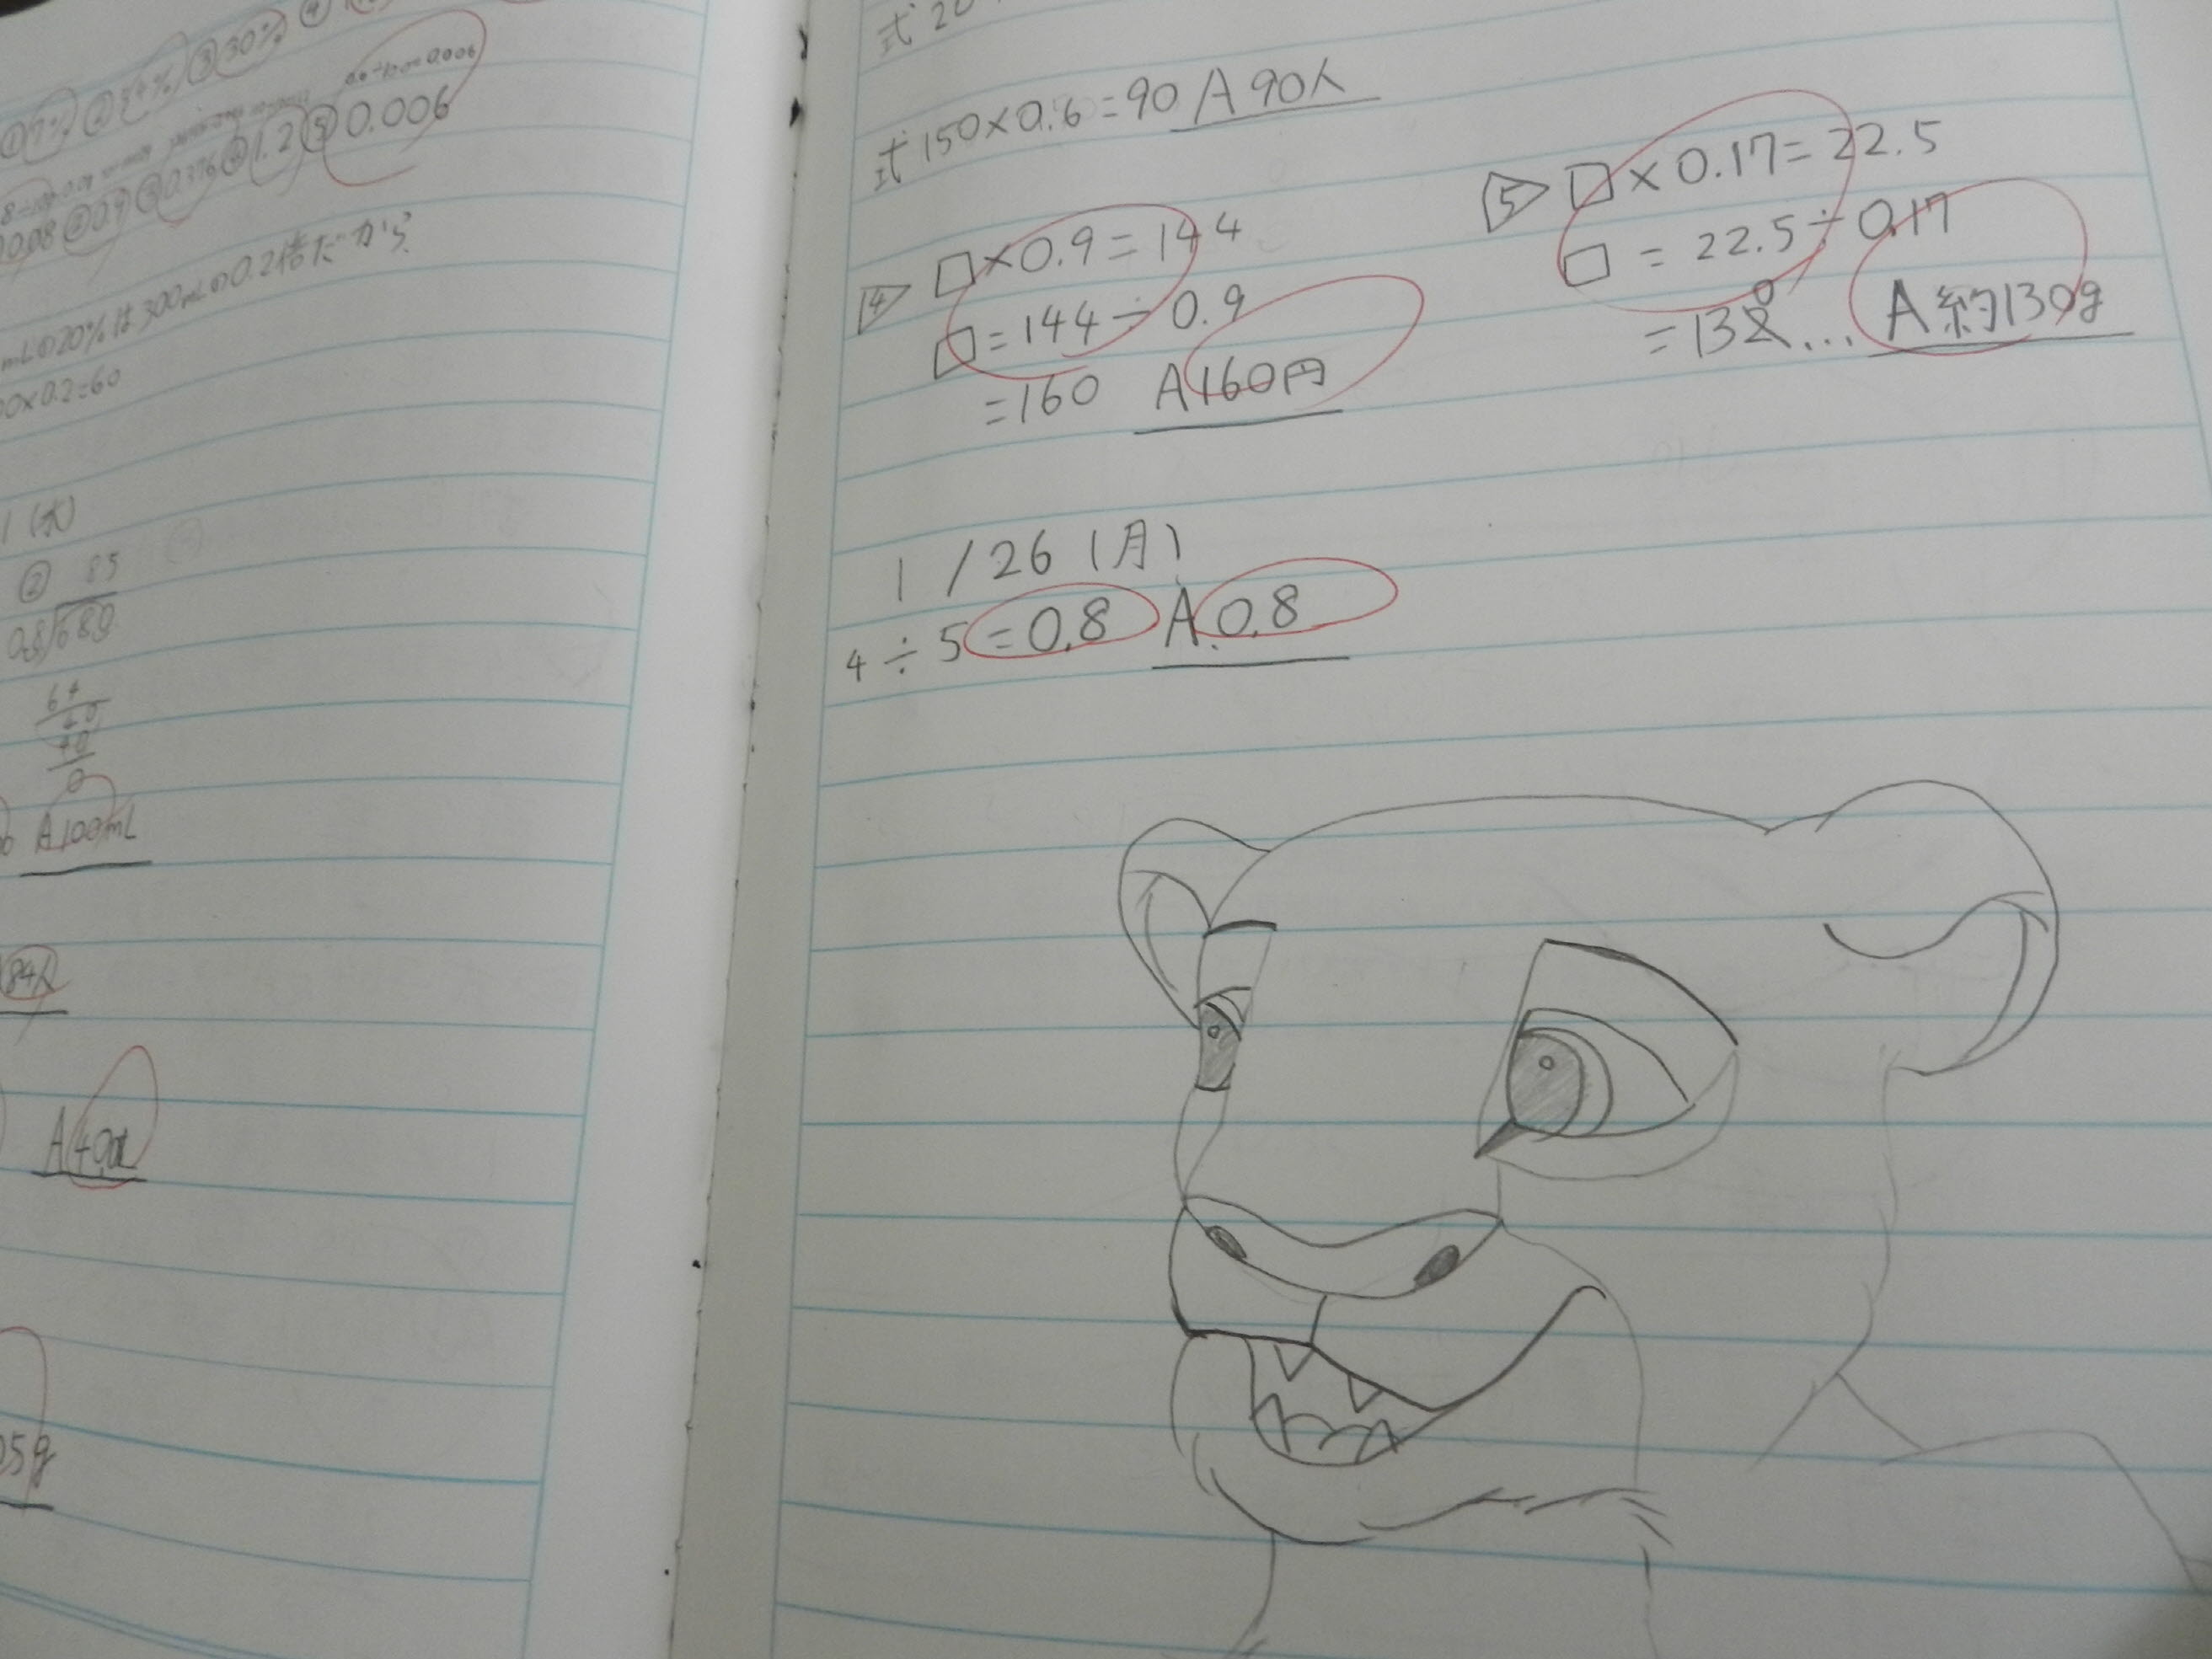 ①7% ② ③30%
0.6÷100=0.006
0.08 ②0.9 ③0.376 ④1.2 ⑤0.006
mLの20%は300mLの0.2倍だから
00×0.2=60
1(水)
② 85
0.8)680
64
40
40
0
A100mL
84人
A
05g
式20
式150×0.6=90 A 90人
14 □×0.9=144
□=144÷0.9
=160 A160円
15 □×0.17=22.5
□=22.5÷0.17
=132... A約130g
0
1/26(月)
4÷5=0.8 A.0.8